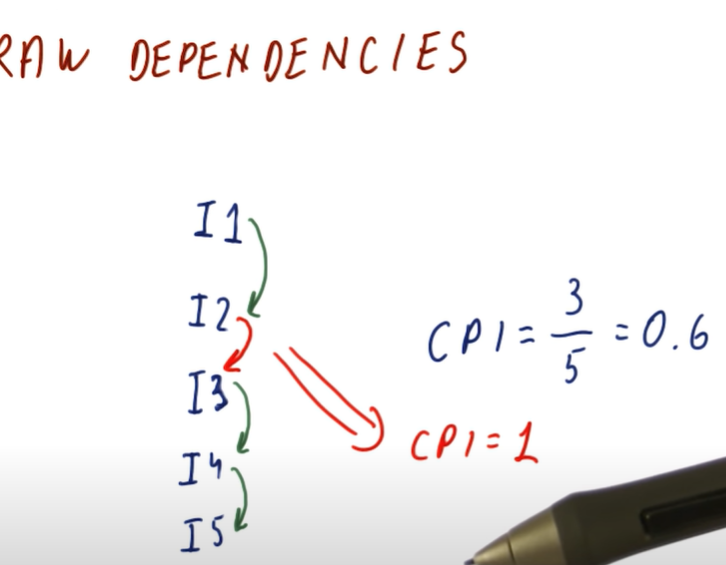 RAW DEPENDENCIES
I1
I2
I3
I4
I5
CPI = 3/5 = 0.6
CPI = 1